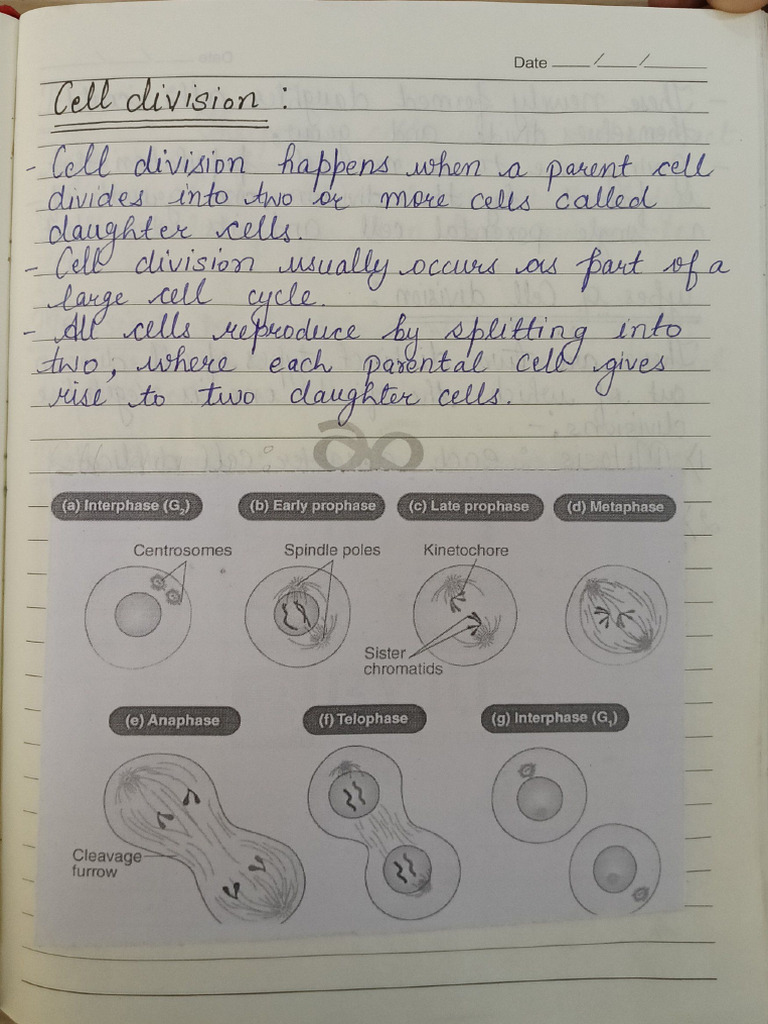 Date __/__/____
Cell division :
- Cell division happens when a parent cell
divides into two or more cells called
daughter cells.
- Cell division usually occurs as part of a
large cell cycle.
- All cells reproduce by splitting into
two, where each parental cell gives
rise to two daughter cells.
(a) Interphase (G₂) (b) Early prophase (c) Late prophase (d) Metaphase
Centrosomes Spindle poles Kinetochore
Sister
chromatids
(e) Anaphase (f) Telophase (g) Interphase (G₁)
Cleavage
furrow